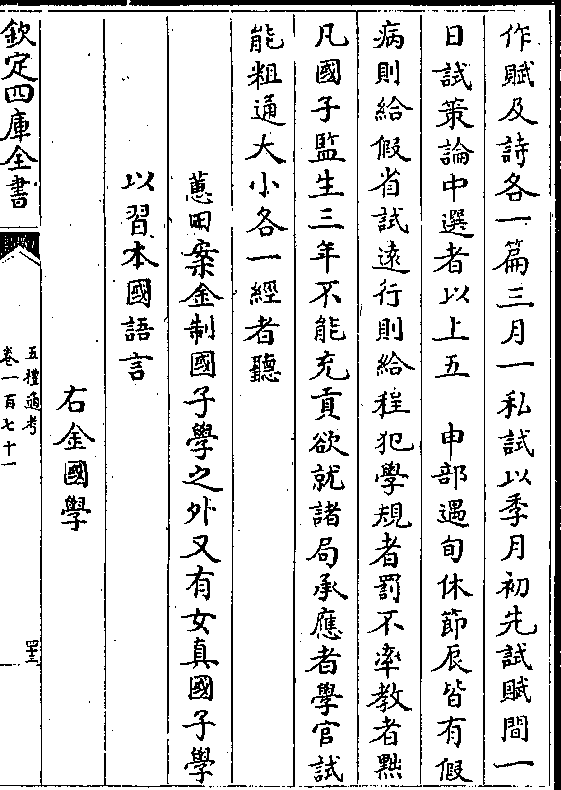 作賦及詩各一篇三月一私試以季月初先試賦間一
日試策論中選者以上五　申部遇旬休節辰皆有假
病則給假省試遠行則給程犯學規者罰不率教者黜
凡國子監生三年不能充貢欲就諸局承應者學官試
能粗通大小各一經者聽
蕙田案金制國子學之外又有女真國子學
以習本國語言
右金國學
欽定四庫全書
五禮通考
卷一百七十一